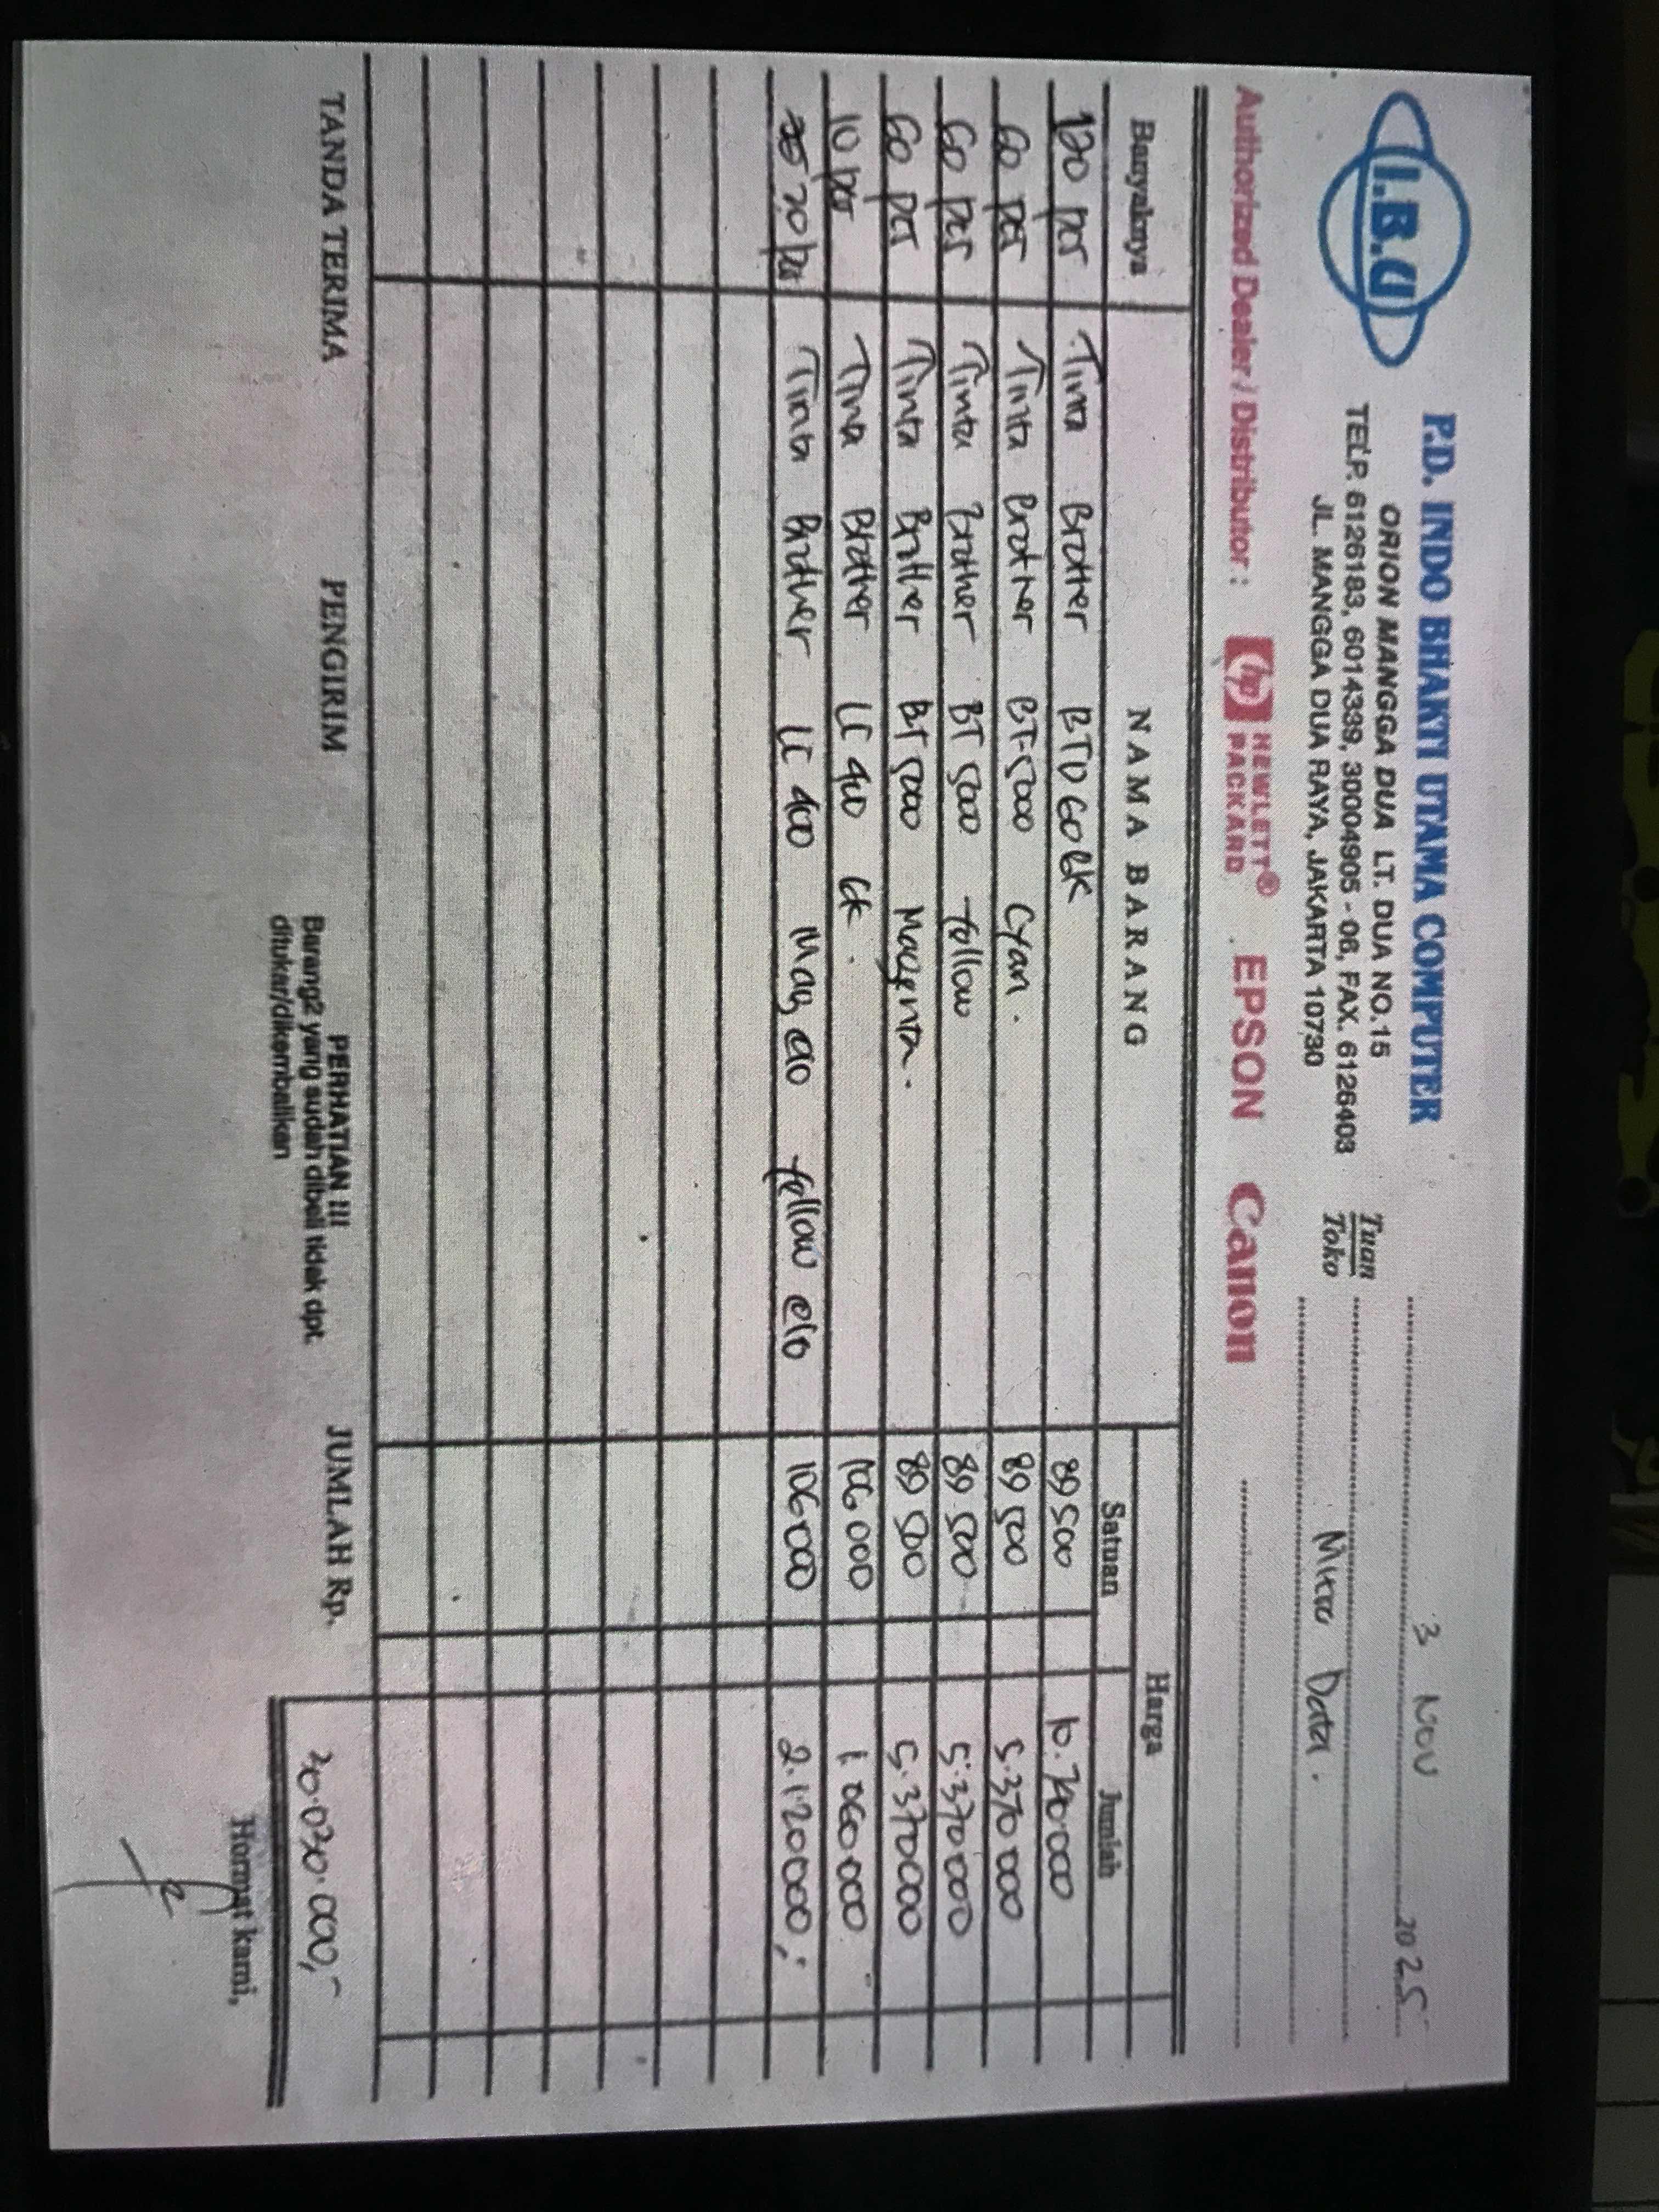 I.B.U
P.D. INDO BHAKTI UTAMA COMPUTER
ORION MANGGA DUA LT. DUA NO.15
TELP. 6126183, 6014339, 3004905 - 06, FAX. 6126403
JL. MANGGA DUA RAYA, JAKARTA 10730
3 Nov 2025
Tuan
Toko
Mitra Data.
Authorized Dealer / Distributor : hp HEWLETT® PACKARD EPSON Canon
Banyaknya NAMA BARANG Harga
Satuan Jumlah
120 pcs Tinta Brother BTD60BK 89500 10.740.000
60 pcs Tinta Brother BT-5000 Cyan. 89 500 5.370 000
60 pcs Tinta Brother BT 5000 Yellow 89 500 5.370 000
60 pcs Tinta Brother BT 5000 Magenta. 89 500 5.370000
10 pcs Tinta Brother LC 400 BK. 106 000 1.060.000
20 pcs Tinta Brother LC 400 Mag @10 Yellow @10 106000 2.120000,-
TANDA TERIMA PENGIRIM PERHATIAN !!! JUMLAH Rp. 30.030.000,-
Barang2 yang sudah dibeli tidak dpt.
ditukar/dikembalikan
Hormat kami,